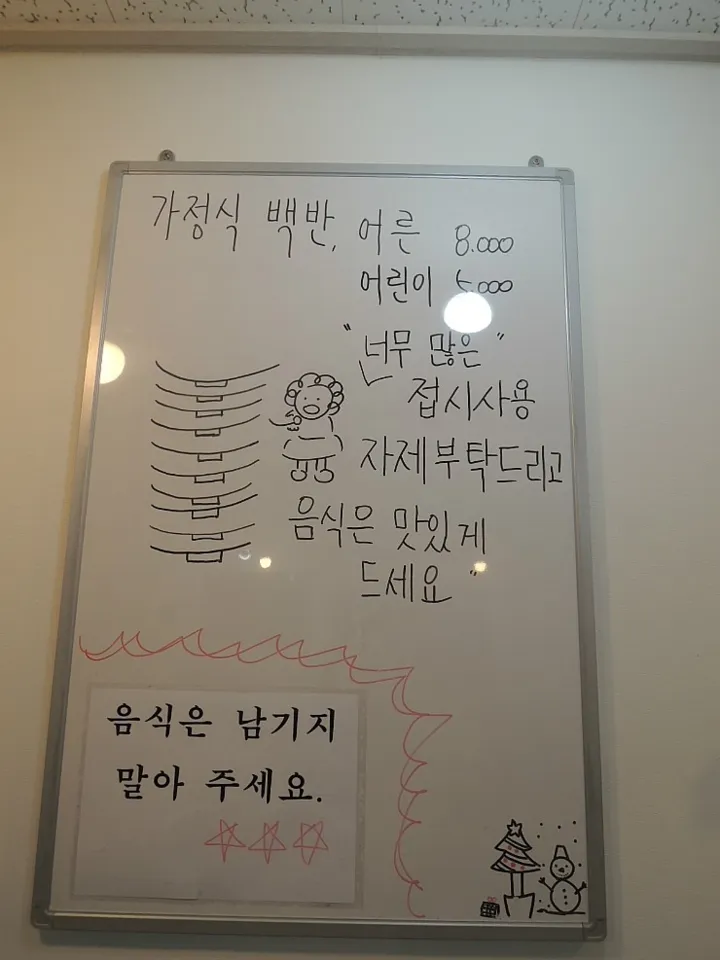 가정식 백반, 어른 8.000
어린이 5.000
"너무 많은"
접시사용
자제부탁드리고
음식은 맛있게
드세요"
음식은 남기지
말아 주세요.